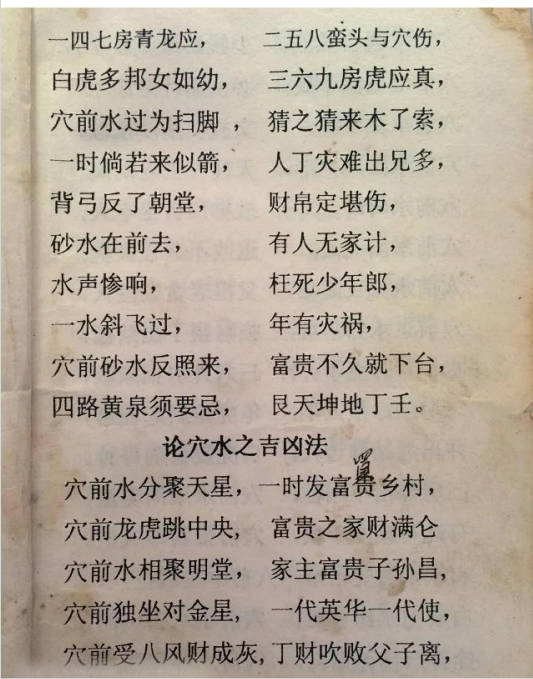 一四七房青龙应，　　二五八蛮头与穴伤，
白虎多邦女如幼，　　三六九房虎应真，
穴前水过为扫脚，　　猜之猜来木了索，
一时倘若来似箭，　　人丁灾难出兄多，
背弓反了朝堂，　　财帛定堪伤，
砂水在前去，　　有人无家计，
水声惨响，　　枉死少年郎，
一水斜飞过，　　年有灾祸，
穴前砂水反照来，　　富贵不久就下台，
四路黄泉须要忌，　　艮天坤地丁壬。
论穴水之吉凶法
穴前水分聚天星，一时发富贵乡村，
穴前龙虎跳中央，　富贵之家财满仑
穴前水相聚明堂，　家主富贵子孙昌，
穴前独坐对金星，　一代英华一代使，
穴前受八风财成灰，丁财吹败父子离，